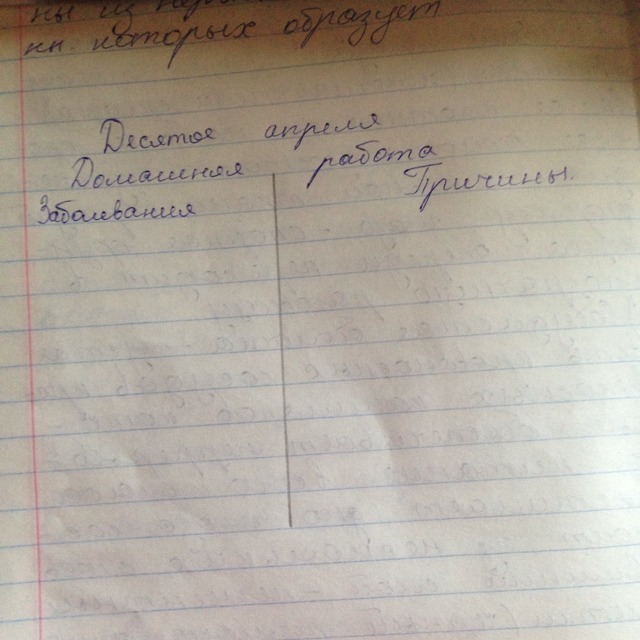 ны из
кн. которых образует
Десятое апреля
Домашняя работа
Заболевания Причины.